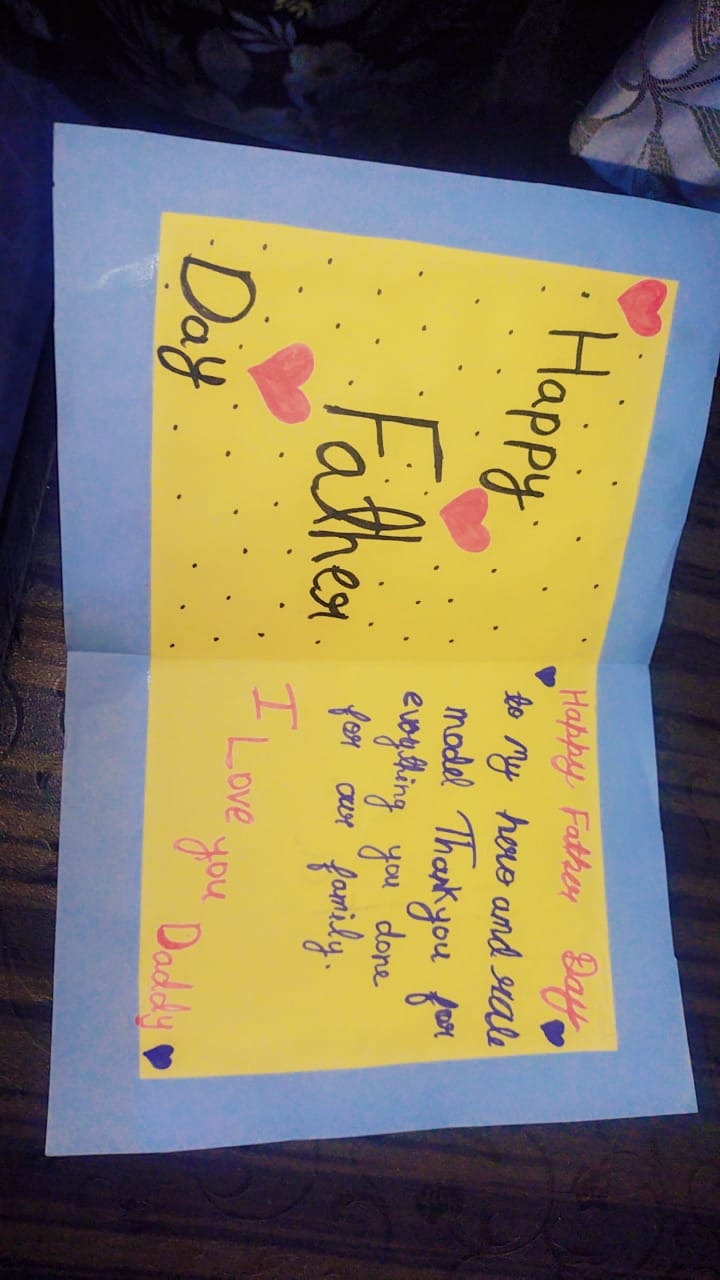 Happy
Father
Day
Happy Father Day
to my hero and role
model Thankyou for
everything you done
for our family.
I Love you Daddy